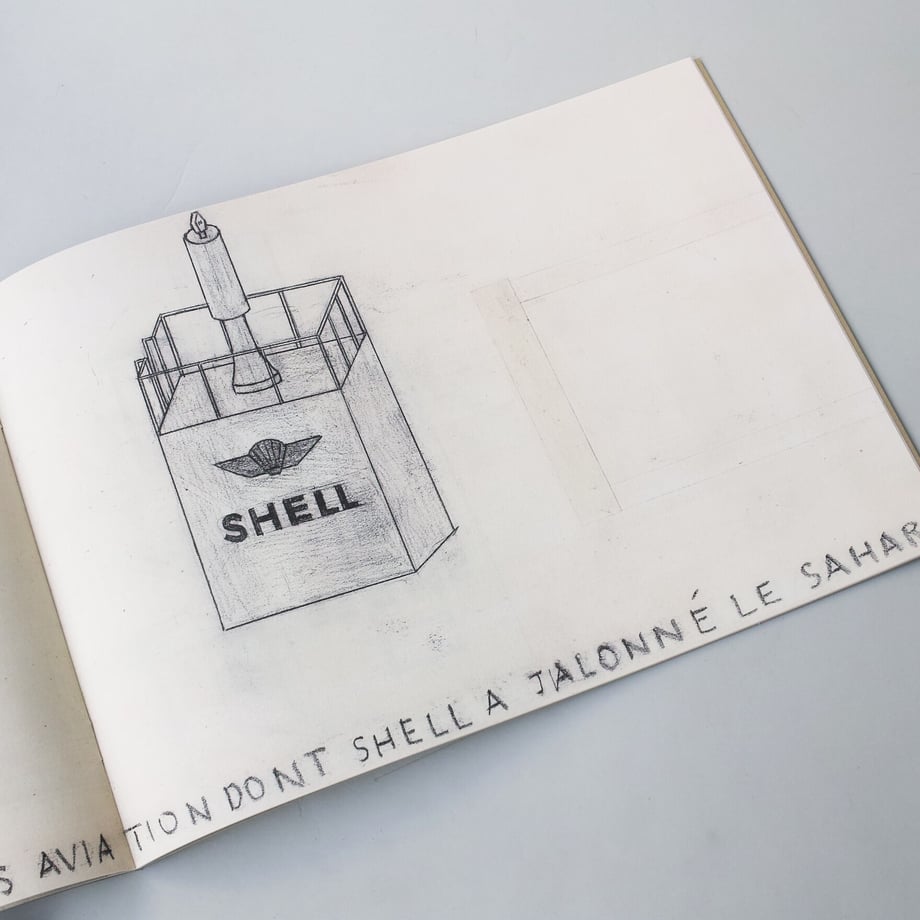 SHELL
S AVIATION DONT SHELL A JALONNÉ LE SAHAR